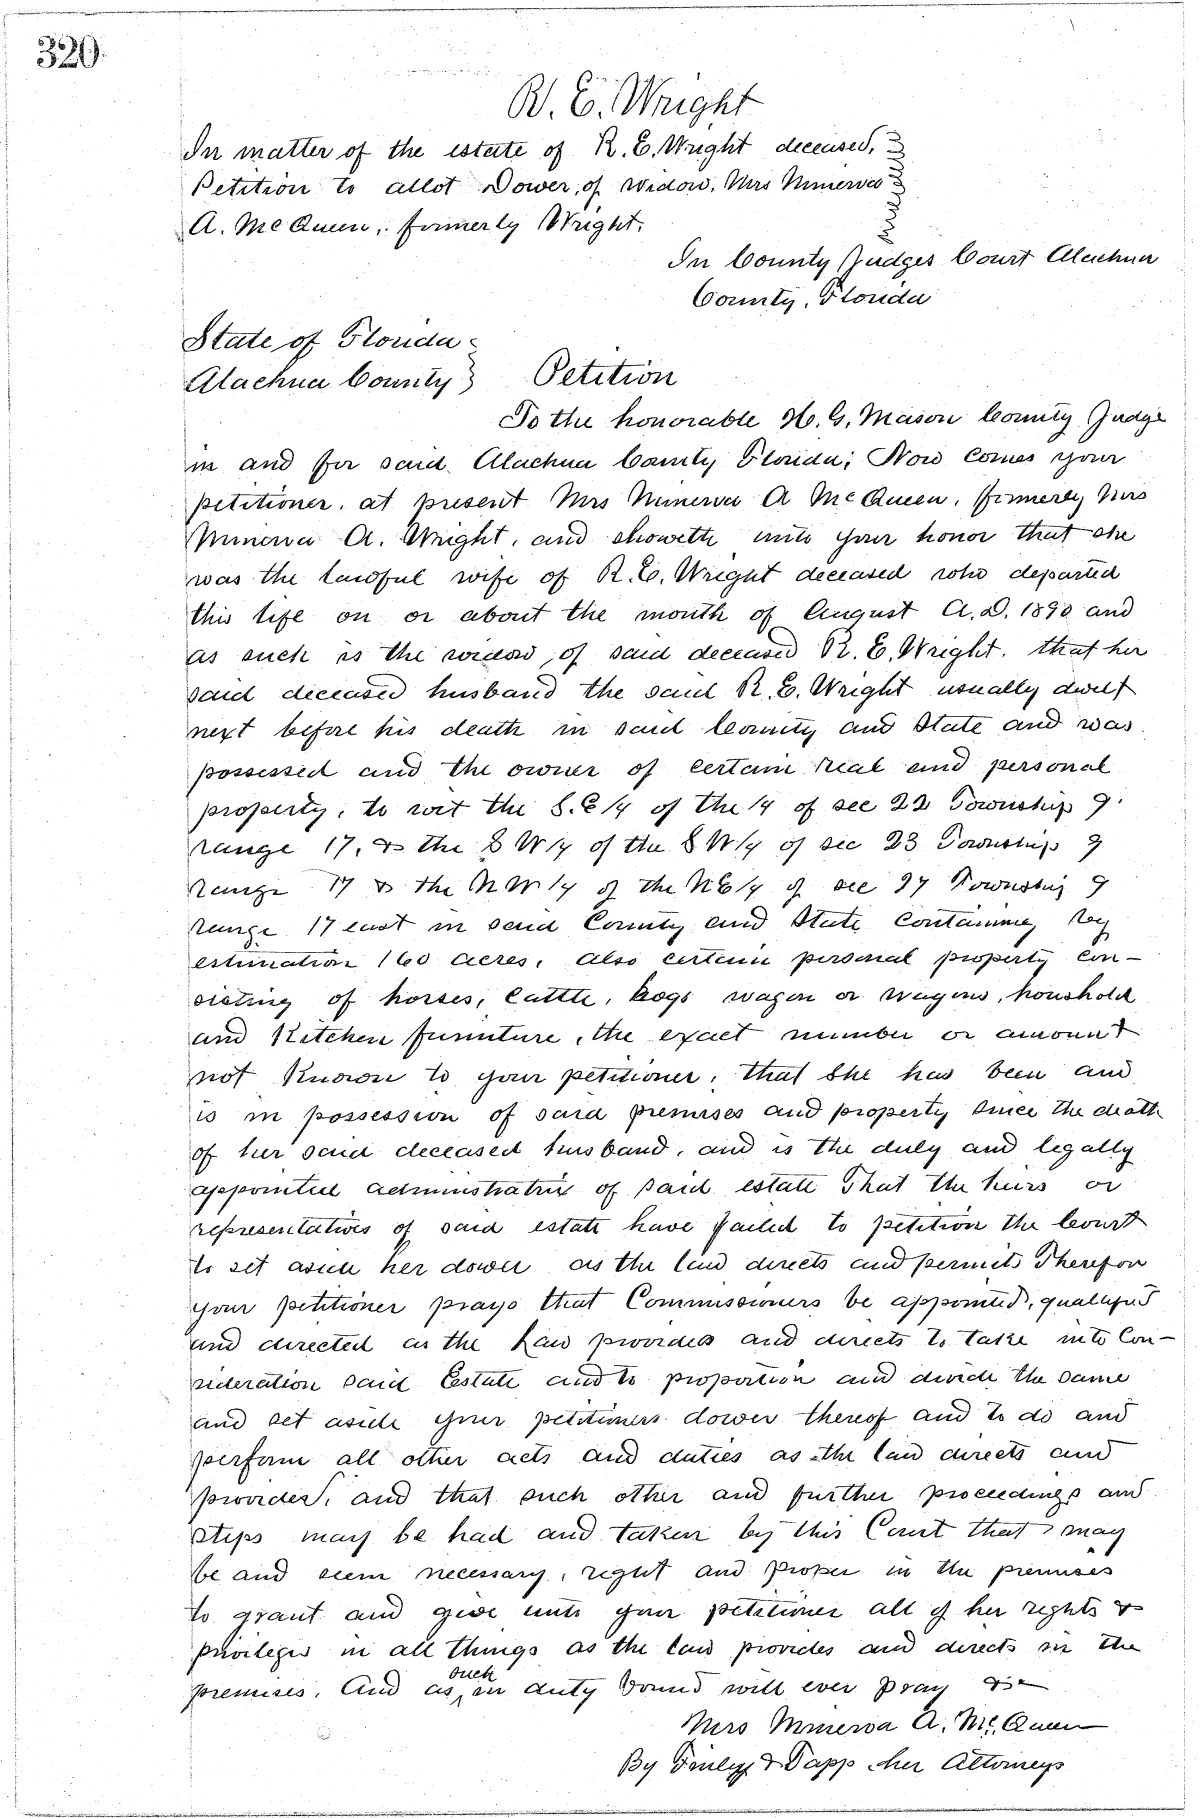 320
R. E. Wright
In matter of the estate of R. E. Wright deceased,
Petition to allot Dower, of widow, Mrs Minerva
A. McQueen, formerly Wright.
In County Judges Court Alachua
County, Florida
State of Florida
Alachua County } Petition
To the honorable H. G. Mason County Judge
in and for said Alachua County Florida; Now comes your
petitioner, at present Mrs Minerva A McQueen, formerly Mrs
Minerva A. Wright, and showeth unto your honor that she
was the lawful wife of R. E. Wright deceased who departed
this life on or about the month of August A.D. 1890 and
as such is the widow, of said deceased R. E. Wright. that her
said deceased husband the said R. E. Wright usually dwelt
next before his death in said County and State and was
possessed and the owner of certain real and personal
property, to wit the S.E 1/4 of the 1/4 of sec 22 Township 9
range 17, & the S W 1/4 of the S W 1/4 of sec 23 Township 9
range 17 & the N W 1/4 of the N E 1/4 of sec 27 Township 9
range 17 east in said County and State containing by
estimation 160 acres, also certain personal property con-
sisting of horses, Cattle, hogs wagon or wagons, houshold
and Kitchen furniture, the exact number or amount
not Known to your petitioner, that She has been and
is in possession of said premises and property since the death
of her said deceased husband, and is the duly and legally
appointed administratrix of said estate That the heirs or
representatives of said estate have failed to petition the Court
to set aside her dower as the law directs and permits Therefor
your petitioner prays that Commissioners be appointed, qualified
and directed as the Law provides and directs to take into Con-
sideration said Estate and to proportion and divide the same
and set aside your petitioners dower thereof and to do and
perform all other acts and duties as the law directs and
provides, and that such other and further proceedings and
steps may be had and taken by this Court that may
be and seem necessary, right and proper in the premises
to grant and give unto your petitioner all of her rights &
privileges in all things as the law provides and directs in the
premises. And as such in duty bound will ever pray &c
Mrs Minerva A. McQueen
By Finley & Tapp her Attorneys